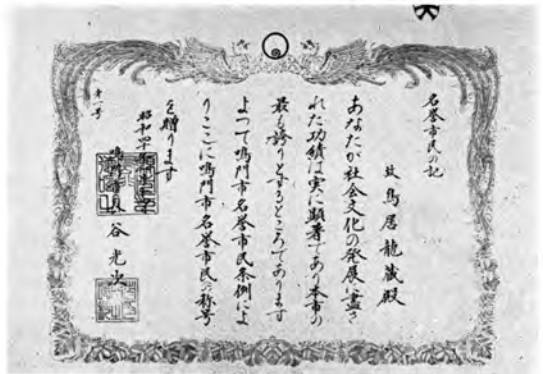 名誉市民の記
故鳥居龍蔵殿
あなたが社会文化の発展に尽さ
れた功績は実に顕著であり本市の
最も誇りとするところであります
よつて鳴門市名誉市民条例によ
りここに鳴門市名誉市民の称号
を贈ります
昭和四十
鳴門市長 谷光次
第一号